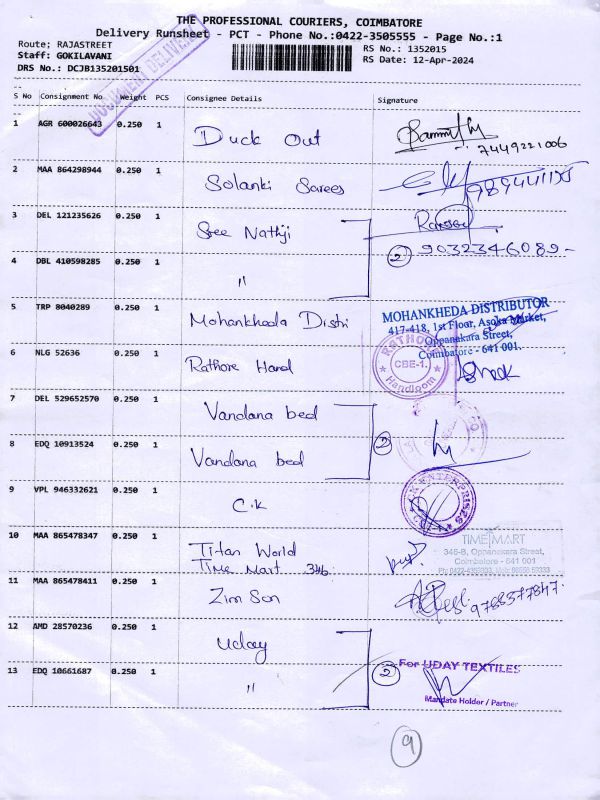 THE PROFESSIONAL COURIERS, COIMBATORE
Delivery Runsheet - PCT - Phone No.:0422-3505555 - Page No.:1
Route: RAJASTREET
RS No.: 1352015
Staff: GOKILAVANI
RS Date: 12-Apr-2024
DRS No.: DCJB135201501
S No Consignment No Weight PCS Consignee Details Signature
1 AGR 600026643 0.250 1 Duck Out
7449221006
2 MAA 864298944 0.250 1 Solanki Sarees
3 DEL 121235626 0.250 1 Sree Nathji
2 9032346089-
4 DBL 410598285 0.250 1 "
5 TRP 8040289 0.250 1 Mohankheda Distri
MOHANKHEDA DISTRIBUTOR
417-418, 1st Floor, Asoka Market,
Oppanakara Street,
Coimbatore - 641 001.
6 NLG 52636 0.250 1 Rathore Hand
RATHORE
CBE-1.
Handloom
7 DEL 529652570 0.250 1 Vandana bed
2
8 EDQ 10913524 0.250 1 Vandana bed
9 VPL 946332621 0.250 1 C.K
CK ENTERPRISES
10 MAA 865478347 0.250 1 Titan World
Time Mart 346
TIME MART
346-B, Oppanakara Street,
Coimbatore - 641 001
11 MAA 865478411 0.250 1 Zim Son
9788377847.
12 AMD 28570236 0.250 1 Uday
13 EDQ 10661687 0.250 1 "
2
For UDAY TEXTILES
Mandate Holder / Partner
9